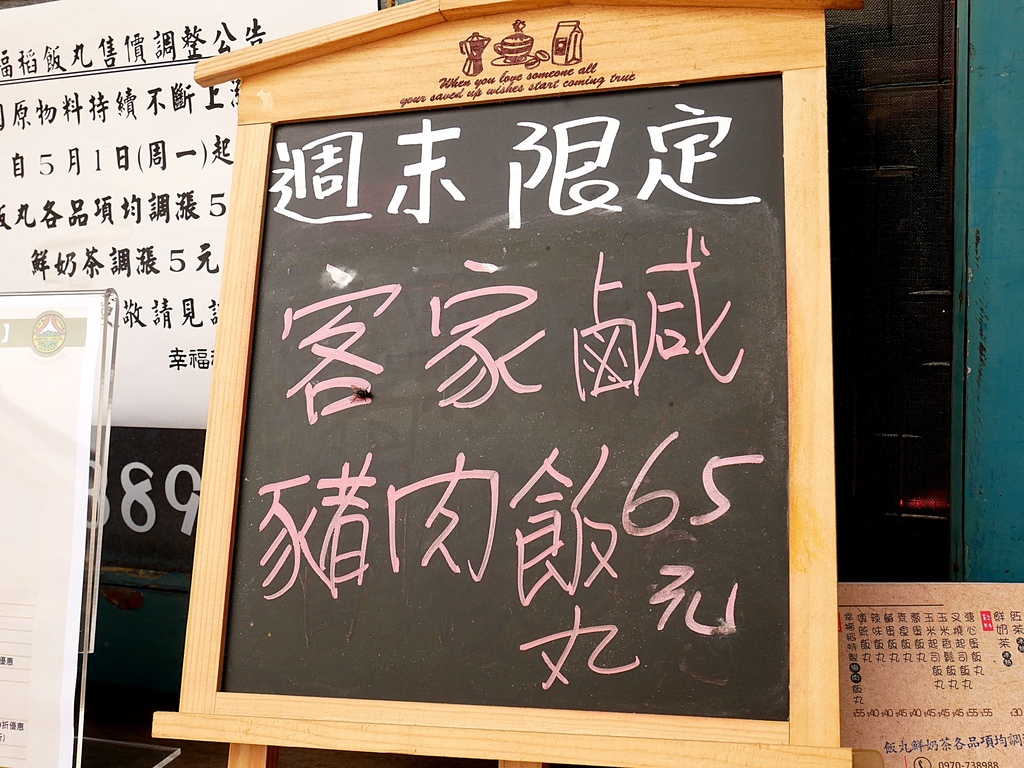 福稻飯丸售價調整公告
原物料持續不斷上漲
自5月1日(周一)起
飯丸各品項均調漲5
鮮奶茶調漲5元
敬請見諒
幸福
389
When you love someone all
your saved up wishes start coming trut
週末限定
客家鹹
豬肉飯丸
65元
優惠
折優惠
鮮奶茶
$55 $40 $40 $45 $40 $45 $45 $55 $55
$30
飯丸鮮奶茶各品項均調
0970-738988